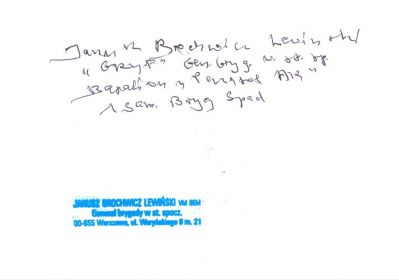 Janusz Brochwicz Lewiński
"GRYF" Gen. bryg. w st. sp.
Batalion "Parasol AK"
1 Sam. Bryg Spad
JANUSZ BROCHWICZ LEWIŃSKI VM BEM
Generał brygady w st. spocz.
00-655 Warszawa, ul. Waryńskiego 9 m. 21